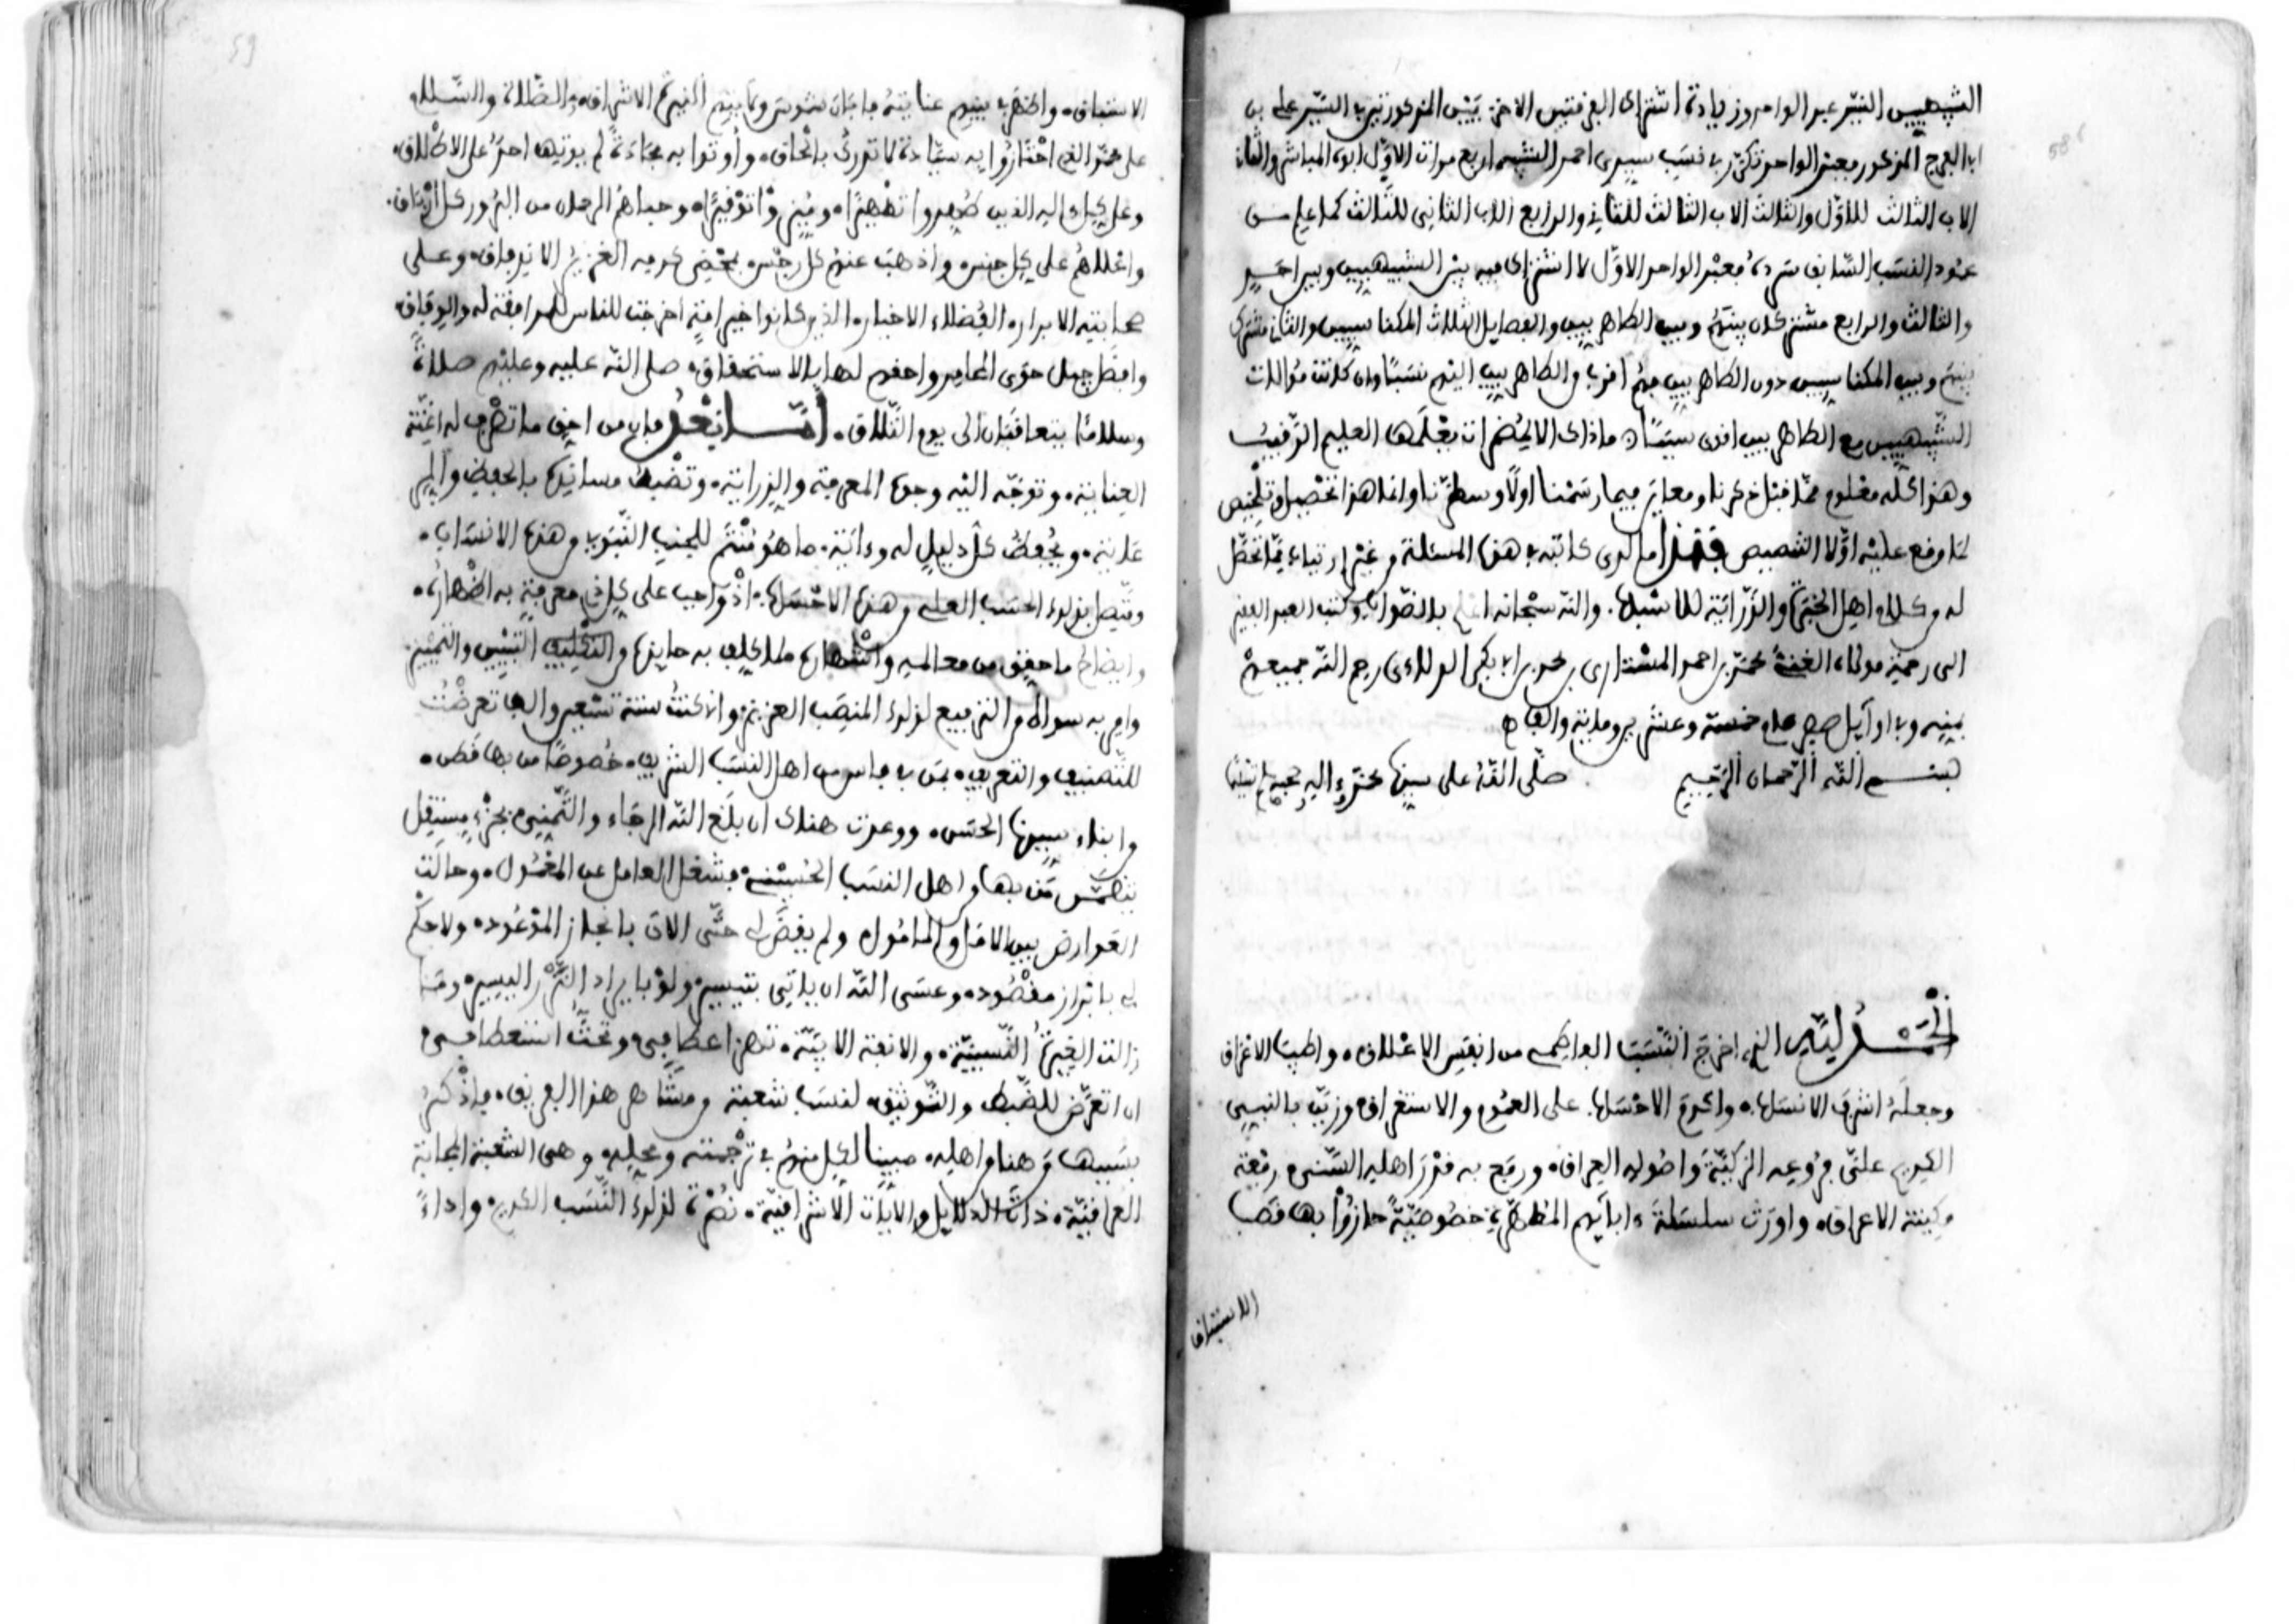 الشبيهيين السيد عبد الواحد وزيادة اشتراك الفرقتين الاخريين المذكورتين في السيد علي بن
ابي الفرج المذكور فعبد الواحد تكرر في نسب سيدي احمد الشبيه اربع مرات الاول ابوه المباشر والثاني
الاب الثالث للاول والثالث الاب الثالث للثاني والرابع الاب الثاني للثالث كما علم من
عمود النسب السابق سرده فعبد الواحد الاول لا اشتراك فيه بين الشبيهيين وبين احد
والثالث والرابع مشتركان بينهم وبين الطاهريين والفصايل الثلاث المكناسيين والثاني مشترك
بينهم وبين المكناسيين دون الطاهريين فهم اقرب والطاهريين اليهم نسبا وان كانت موالات
الشبيهيين مع الطاهريين اقوى سببا ماذاك الا لحكم انت يعلمها العليم الرقيب
وهذا كله معلوم مما قبل ذكرنا ومعاين فيما رسمنا اولا وسطرنا وانما هذا تحصيل وتلخيص
لما وقع عليه اولا التنصيص فهذا ما لدى كاتبه في هذه المسئلة من غير ارتياء مما تحصل
له من كلام اهل الخبرة والدراية للانساب. والله سبحانه اعلم بالصواب وكتب العبد الفقير
الى رحمة مولاه الغني محمد بن احمد المسناوي بن محمد بن ابي بكر الدلاءي رحم الله جميعهم
بمنه وفي اوايل صفر عام خمسة وعشرين وماية والف
بسم الله الرحمان الرحيم صلى الله على سيدنا محمد واله وصحبه وسلم تسليما
الحمد لله الذي اخرج النسب الفاطمي من انفس الاعلاق. واطيب الاعراق
وجعله اشرف الانساب. واكرم الاحساب. على العموم والاستغراق. وزين بالنبي
الكريم على فروعه الزكية واصوله العراق. ورفع به قدر اهله السني رفعة
مكينة الاعراق. واورث سلسلة اباءيهم المطهرين خصوصية حازوا بها قصب
الاستباق
الاستباق. واظهر في بنيهم عنايته فاجان شموس وما بينهم النير ثم الاشراق. والصلاة والسلام
على محمد الذي اختاروا به سيادة لا تدرك بالحاق. واوتوا به مجادة لم يوتها احد على الاطلاق.
وعلى كل اله الذين طهروا تطهيرا. وميزوا توفيرا. وحباهم الرحمان من البرور كل ارفاق.
واعلاهم على كل جنس. واذهب عنهم كل رجس. بمحض كرمه الغزير الانـدفاق. وعلى
صحابته الابرار. الفضلاء الاخيار. الذين كانوا خير امة اخرجت للناس للموافقة له والوفاق
وافضل جيل حوى المحامد واحقهم لها بالاستحقاق. صلى الله عليه وعليهم صلاة
وسلاما يتعاقبان الى يوم التلاق. اما بعد فان من احق ما تصرف له اعنة
العناية. وتوجه اليه وجوه المعرفة والدراية. وتضبط مسانيدها بالحفظ والرعي
غاية. ويحفظ كل دليل له وءاية. ما هو منتم للجنب النبوي من هذه الانساب.
ونيط بذلك الحسب العلي من هذه الاحساب. اذ واجب على كل ذي معرفة به اظهاره.
وايضاح ما خفي من معالمه واشهاره. ما كلف به حايزه من التكليف التبيين والتمييز.
وامر به سواه من الترفيع لذلك المنصب العزيز. وانا كنت سنة تسعين والف تعرضت
للتصنيف والتعريف. بمن بفاس من اهل النسب الشريف. خصوصا من بها قطن.
من ابناء سيدنا الحسن. ووعدت هناك ان بلغ الله الرجاء والتمني. بجزء مستقل
يتضمن من بها من اهل النسب الحسيني. فشغل العامل عن المعمول. وحالت
العوارض بين الامل والمامول. ولم يقض لي حتى الان بانجاز الموعود. ولا حكم
لي بابراز مقصوده. وعسى الله ان ياتي بتيسير. ولو بايراد النزر اليسير. وما
زالت الغيرة النسبية. والانفة الابية. تهز اعطافي. وتحث استعطافي
ان اتعرض للضبط والتوثيق. لنسب شعبة من مشاهر هذا الفريق. فاذكر
بسببها من هنا من اهله. مبينا لكل منهم في ترجمته ومحله. وهي الشعبة الجانة
العراقية. ذات الدلايل والايات الاشراقية. نصرة لذلك النسب الكريم. واداء